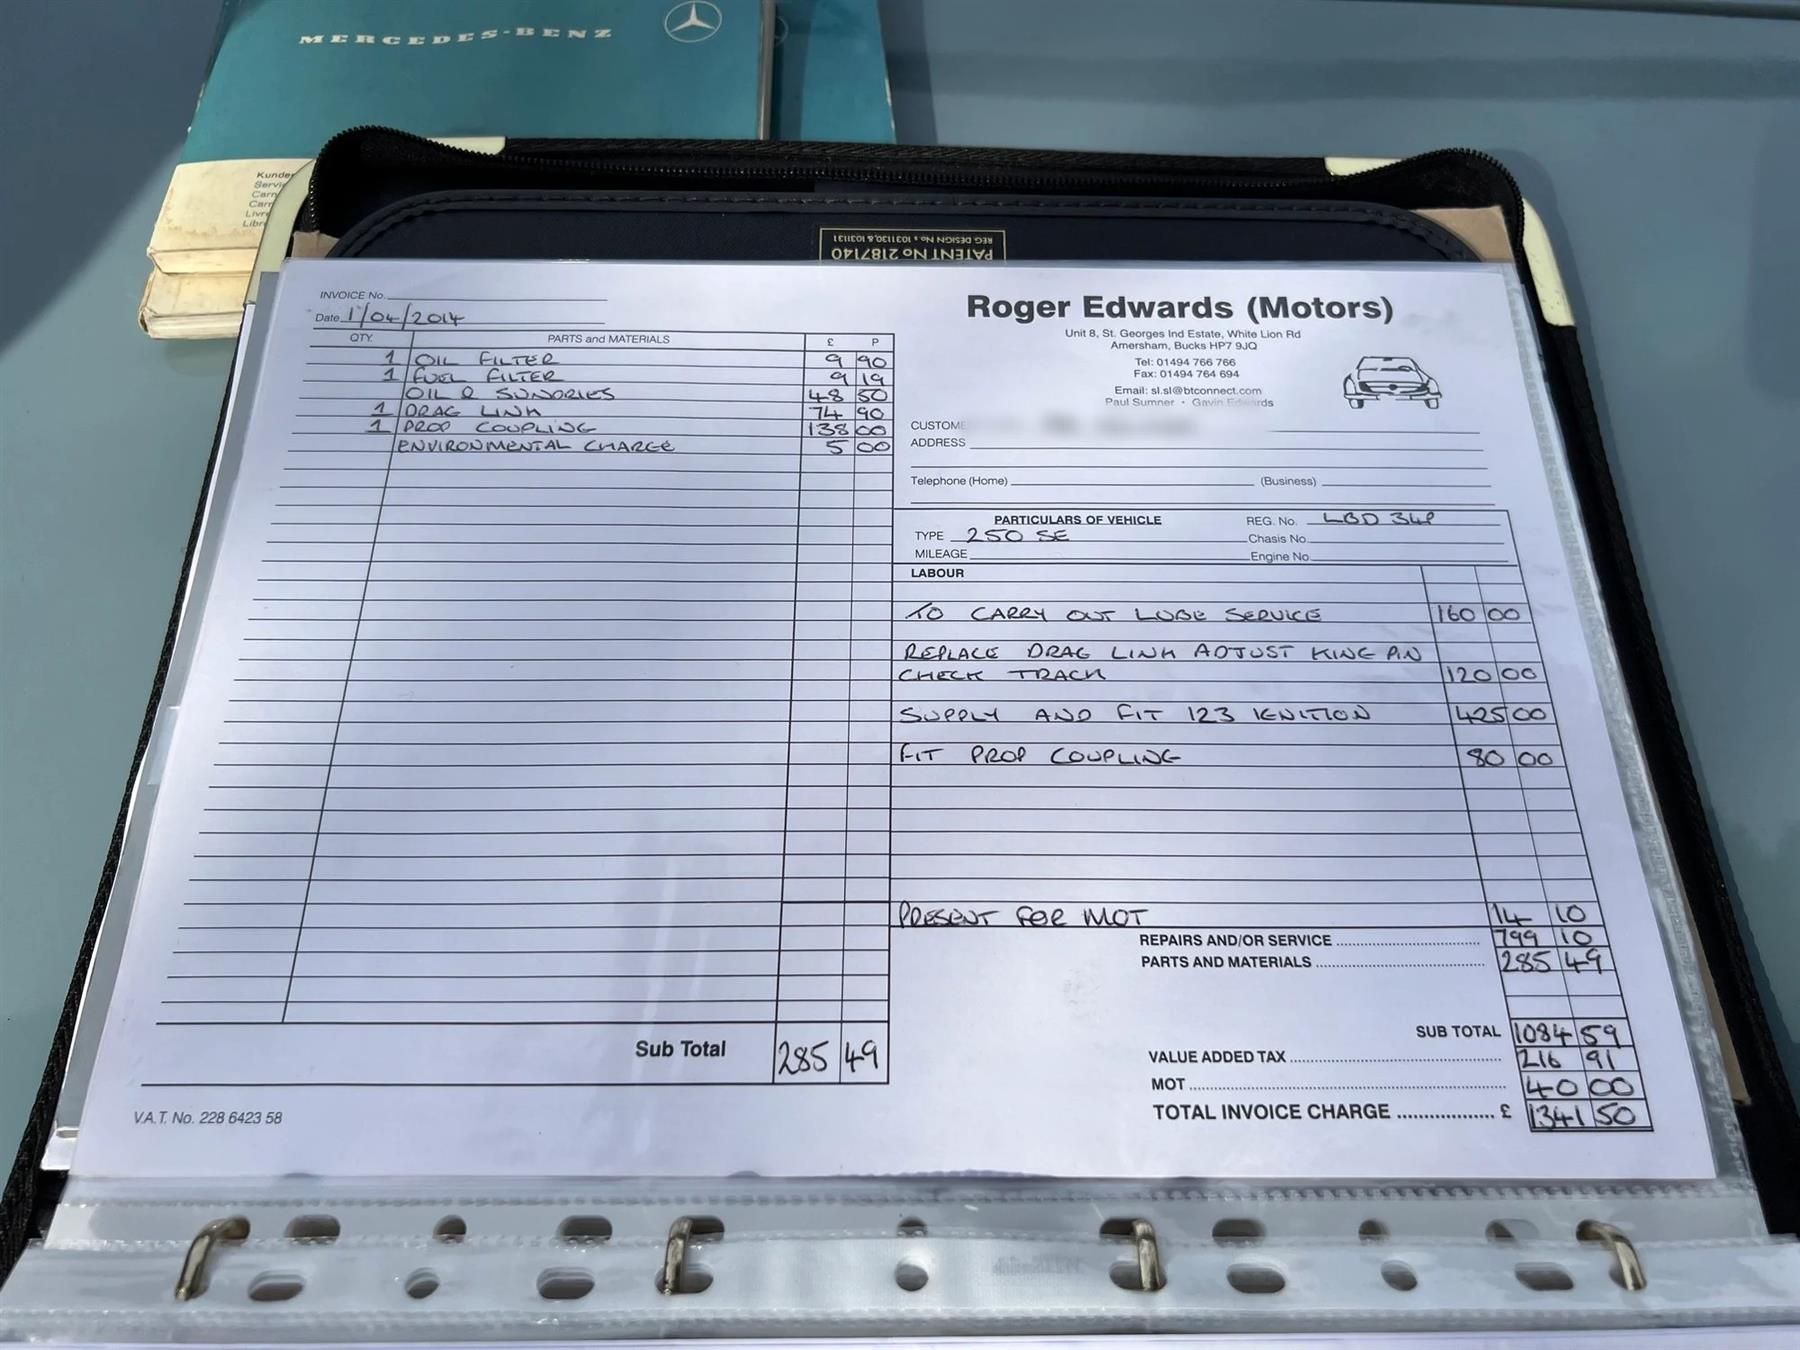 MERCEDES-BENZ
Kunde
Servi
Carn
Carr
Livre
Libre
PATENT No 2187140
REG DESIGN No s 1031130,& 1031131
INVOICE No.
Date 1/04/2014
QTY. PARTS and MATERIALS £ P
1 OIL FILTER 9 90
1 FUEL FILTER 9 19
OIL & SUNDRIES 48 50
1 DRAG LINK 74 90
1 PROP COUPLING 138 00
ENVIRONMENTAL CHARGE 5 00
Sub Total 285 49
V.A.T. No. 228 6423 58
Roger Edwards (Motors)
Unit 8, St. Georges Ind Estate, White Lion Rd
Amersham, Bucks HP7 9JQ
Tel: 01494 766 766
Fax: 01494 764 694
Email: sl.sl@btconnect.com
Paul Sumner • Gavin Edwards
CUSTOME
ADDRESS
Telephone (Home) (Business)
PARTICULARS OF VEHICLE REG. No. LBD 34P
TYPE 250 SE Chasis No.
MILEAGE Engine No.
LABOUR
TO CARRY OUT LUBE SERVICE 160 00
REPLACE DRAG LINK ADJUST KING PIN
CHECK TRACK 120 00
SUPPLY AND FIT 123 IGNITION 425 00
FIT PROP COUPLING 80 00
PRESENT FOR MOT 14 10
REPAIRS AND/OR SERVICE 799 10
PARTS AND MATERIALS 285 49
SUB TOTAL 1084 59
VALUE ADDED TAX 216 91
MOT 40 00
TOTAL INVOICE CHARGE £ 1341 50